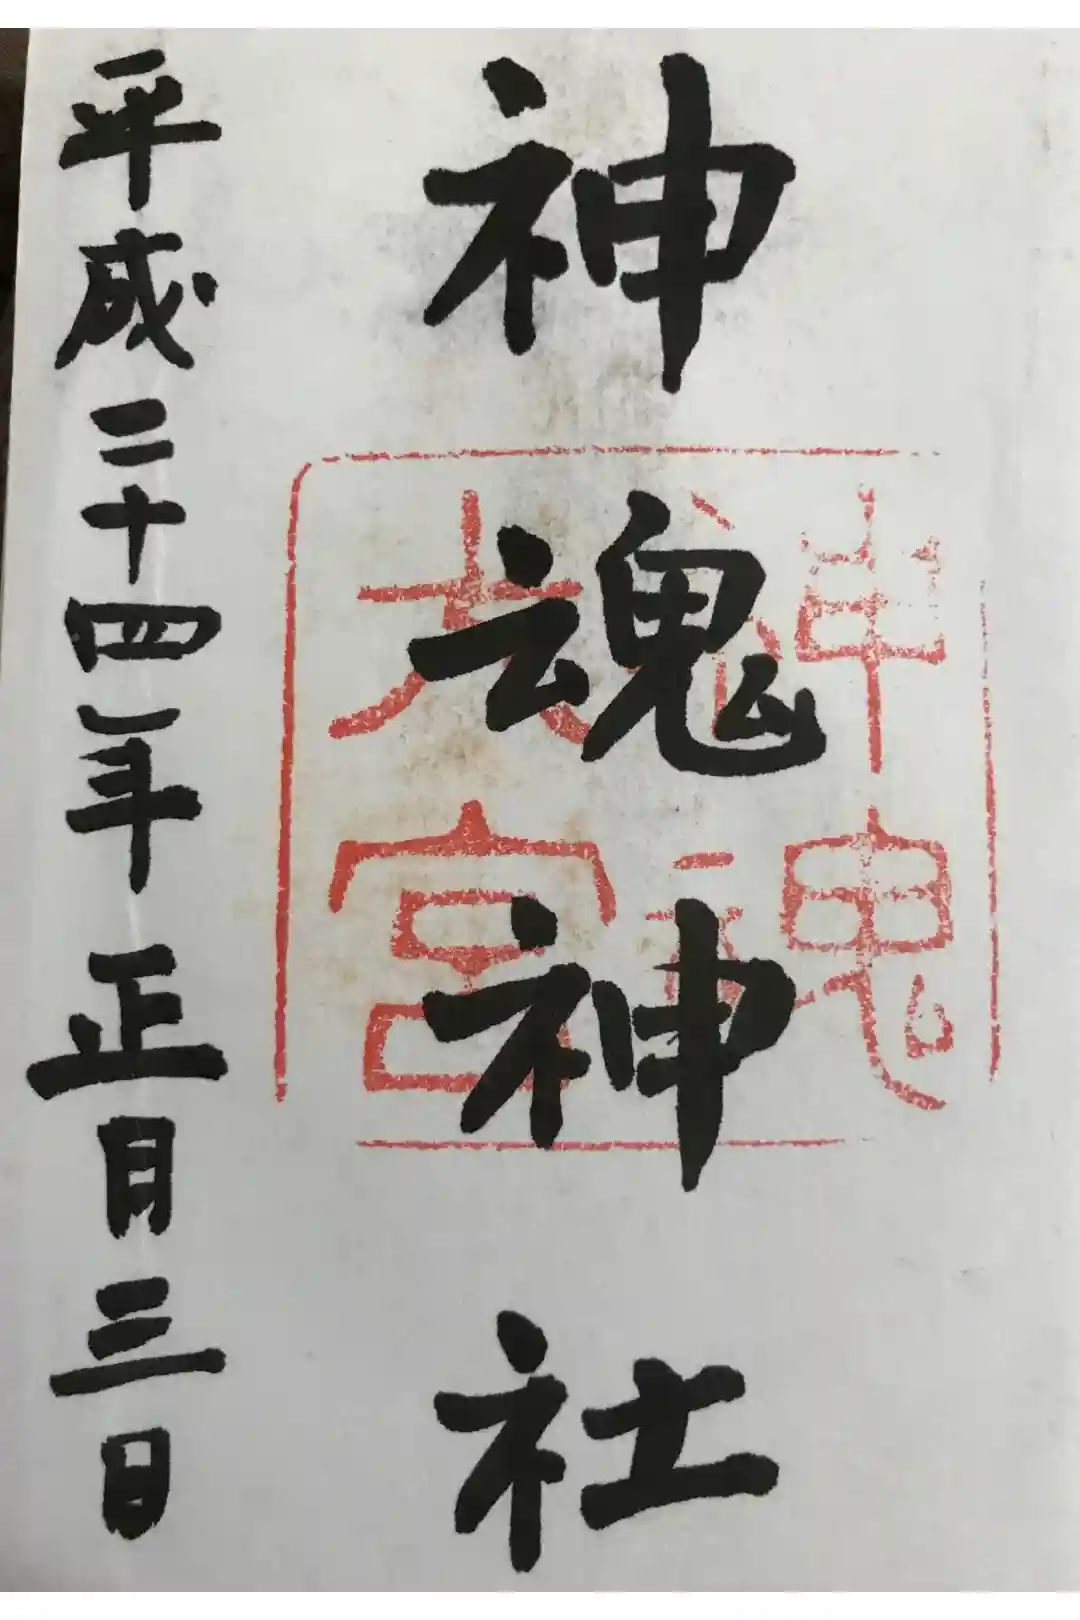 神魂神社
神魂
大宮
平成二十四年正月三日